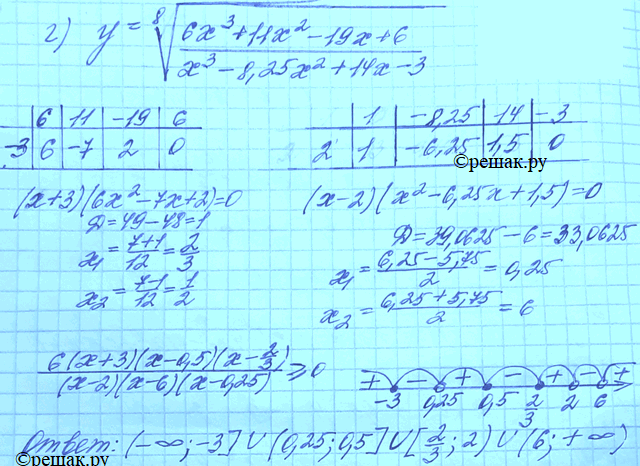 г) y = ⁸√((6x³+11x²-19x+6)/(x³-8,25x²+14x-3))
6 | 11 | -19 | 6
-3 | 6 | -7 | 2 | 0
1 | -8,25 | 14 | -3
2 | 1 | -6,25 | 1,5 | 0
©решак.ру
(x+3)(6x²-7x+2)=0
Д=49-48=1
x₁ = (7+1)/12 = 2/3
x₂ = (7-1)/12 = 1/2
(x-2)(x²-6,25x+1,5)=0
Д=39,0625-6=33,0625
x₁ = (6,25-5,75)/2 = 0,25
x₂ = (6,25+5,75)/2 = 6
6(x+3)(x-0,5)(x-2/3)/((x-2)(x-6)(x-0,25)) ≥ 0
+ - + - + - +
-3 0,25 0,5 2/3 2 6
Ответ: (-∞;-3]∪(0,25;0,5]∪[2/3;2)∪(6;+∞)
©решак.ру